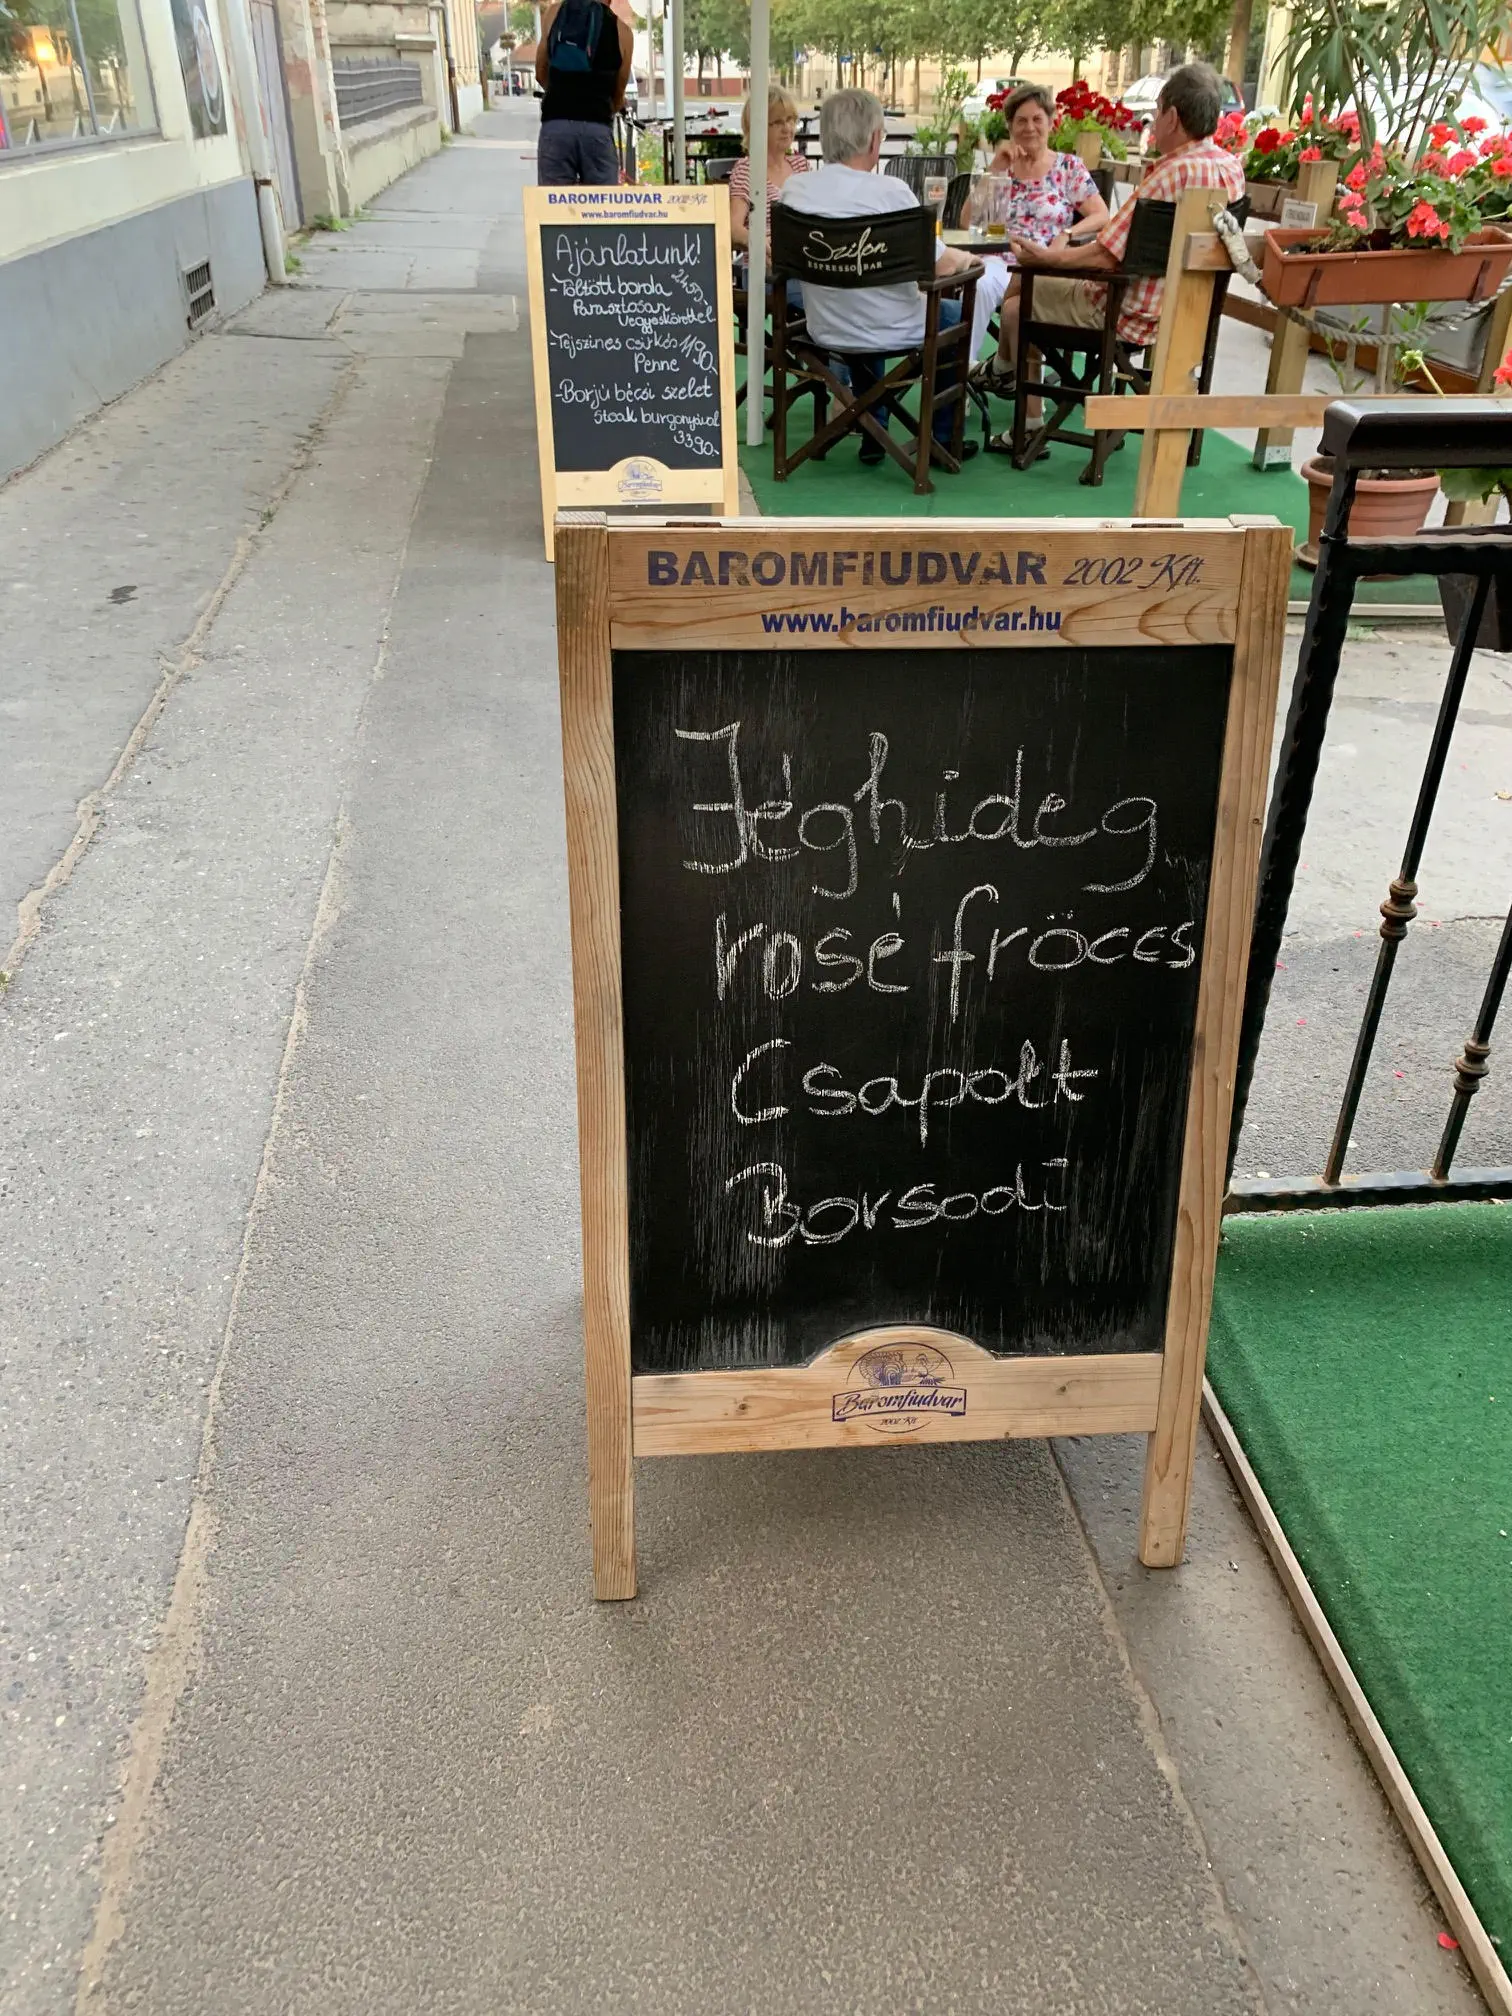 BAROMFIUDVAR 2002 Kft.
www.baromfiudvar.hu
Ajánlatunk!
-Töltött borda 2450.-
Parasztosan
Vegyeskörettel
-Tejszines csirkés 1190.-
Penne
-Borjú bécsi szelet
Steak burgonyával
3390.-
Baromfiudvar
Szifon
ESPRESSO BAR
BAROMFIUDVAR 2002 Kft.
www.baromfiudvar.hu
Jéghideg
rosé fröccs
Csapolt
Borsodi
Baromfiudvar
2002 Kft